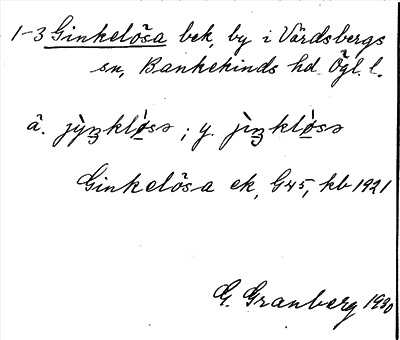 1-3 Ginkelösa bek, by i Vårdsbergs
sn, Bankekinds hd Ögl. l.
å. jỳŋklø̀sə ; y. jìŋklø̀sə
Ginkelösa ek, G45, kb 1921
G. Granberg 1930